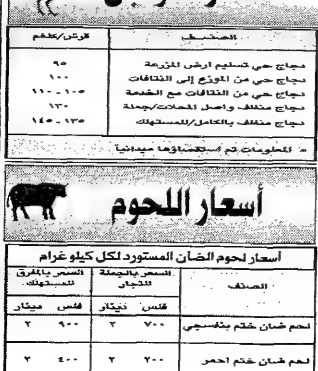 الصنف قرش/كلغم
دجاج حي تسليم ارض المزرعة ٩٥
دجاج حي من الموزع إلى النتافات ١٠٠
دجاج حي من النتافات مع الخدمة ١٠٥-١١٠
دجاج منظف واصل المحلات/جملة ١٣٠
دجاج منظف بالكامل/للمستهلك ١٣٥-١٤٥
المعلومات تم استقصاؤها ميدانياً
أسعار اللحوم
أسعار لحوم الضأن المستورد لكل كيلو غرام
الصنف السعر بالجملة للتجار السعر بالمفرق للمستهلك
فلس دينار فلس دينار
لحم ضان ختم بنفسجي ٧٠٠ ٢ ٩٠٠ ٢
لحم ضان ختم احمر ٢٠٠ ٢ ٤٠٠ ٢